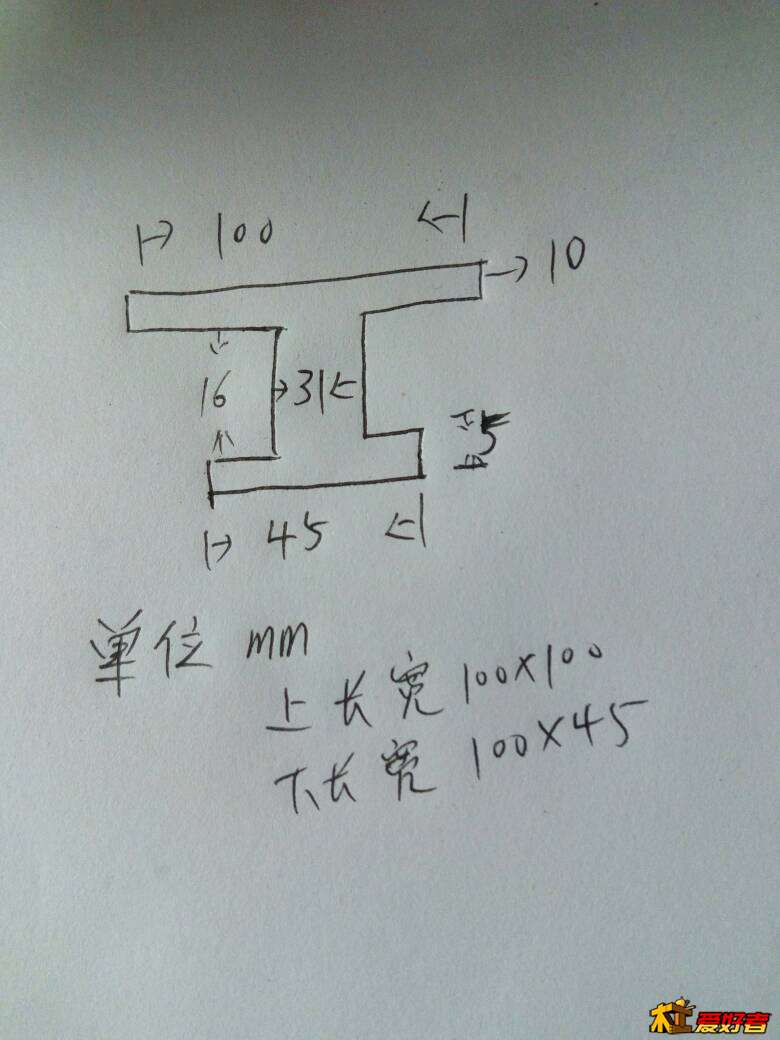 100
10
16
31
5
45
单位 mm
上长宽 100×100
下长宽 100×45
爱好者